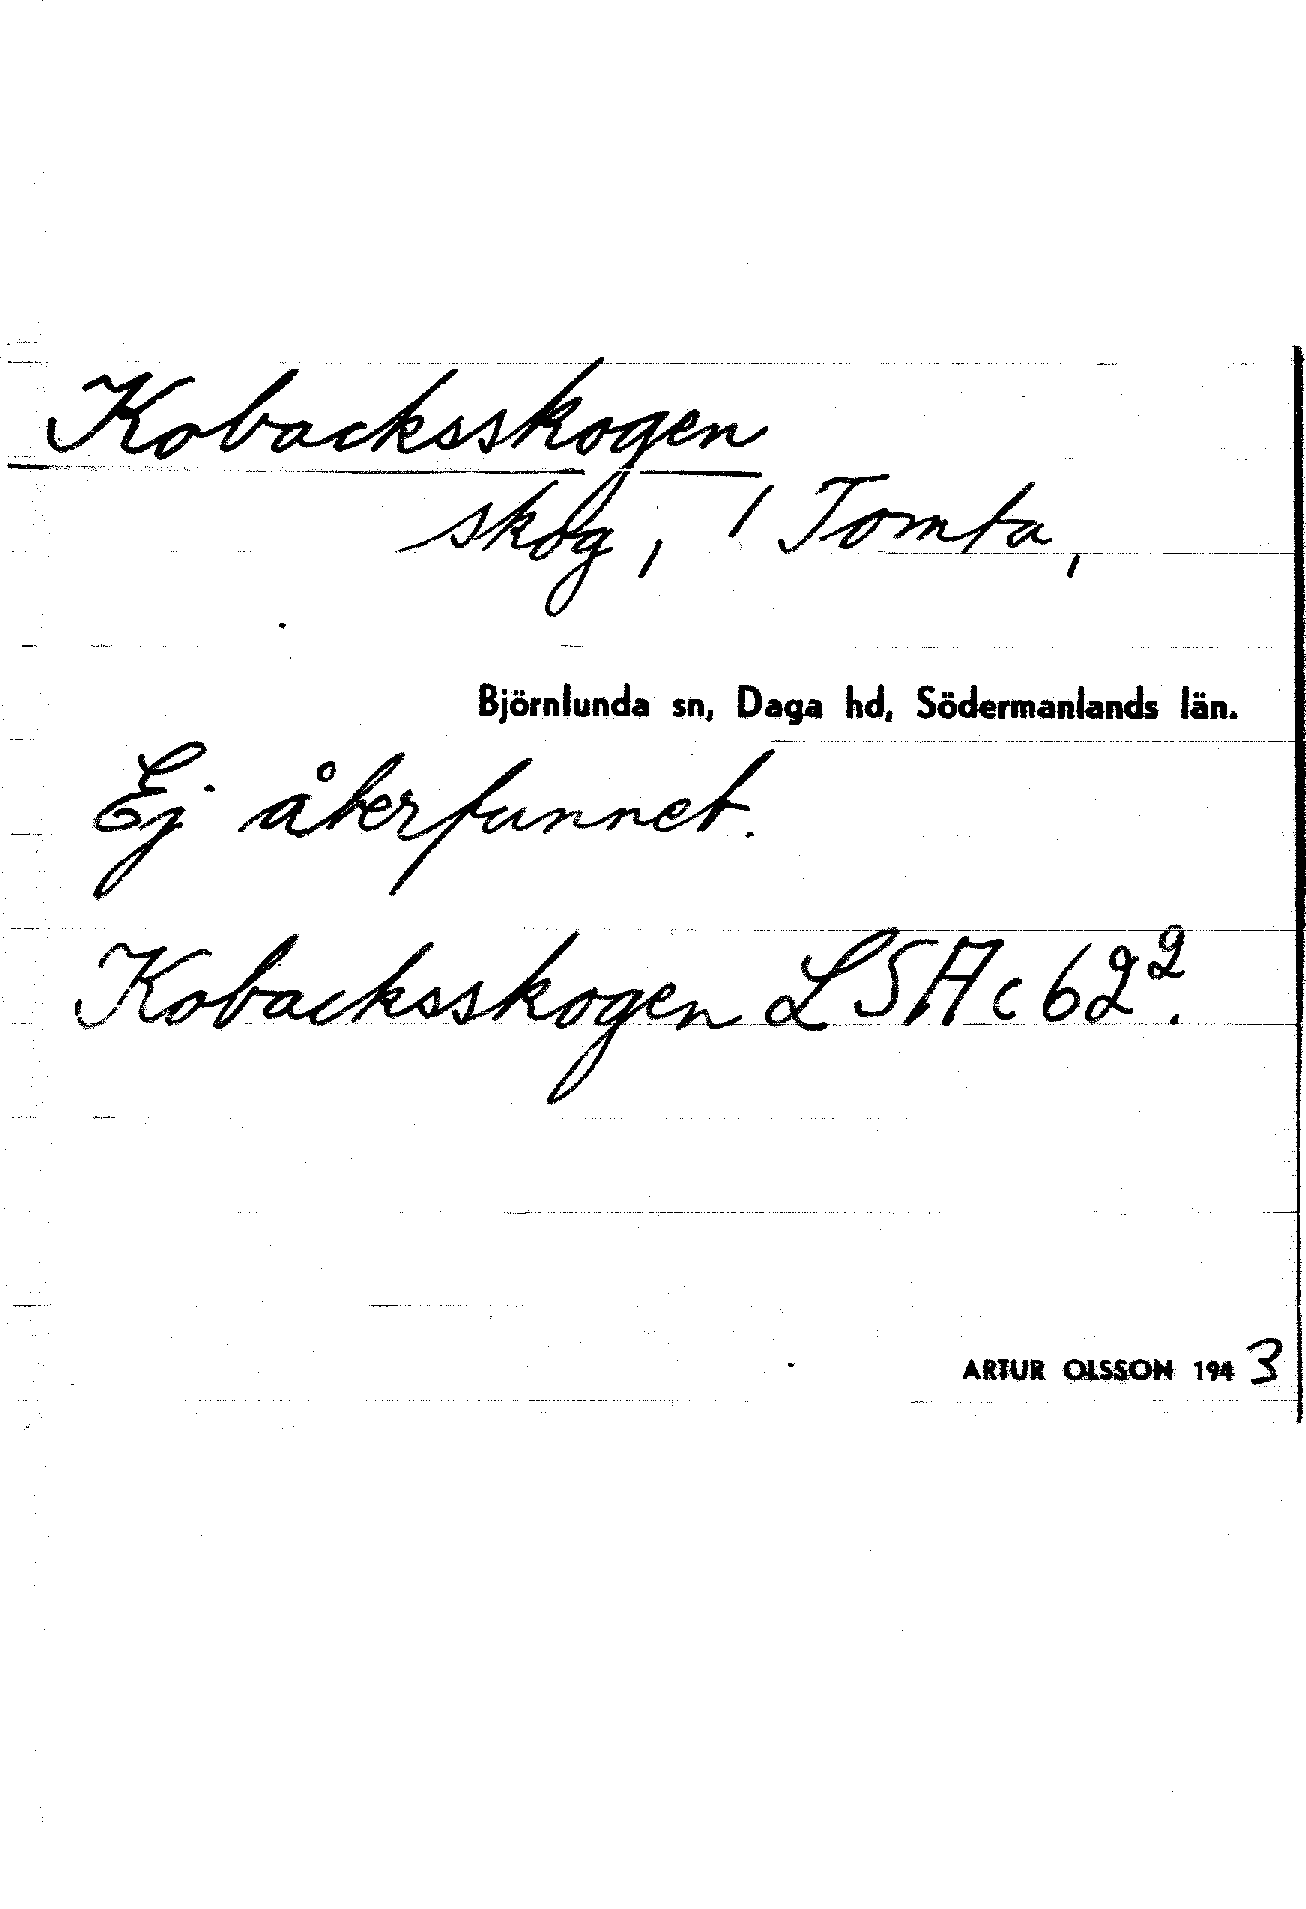 Kobacksskogen
skog, / Tomta,
Björnlunda sn, Daga hd, Södermanlands län.
Ej återfunnet.
Kobacksskogen LSA c 62².
ARTUR OLSSON 1943